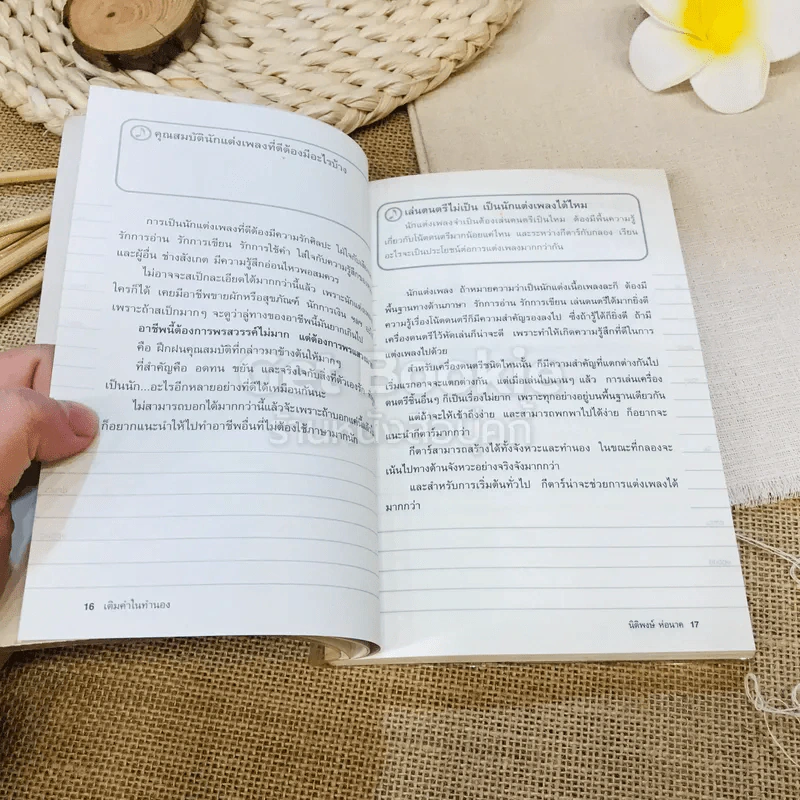 คุณสมบัตินักแต่งเพลงที่ดีต้องมีอะไรบ้าง
การเป็นนักแต่งเพลงที่ดีต้องมีความรักศิลปะ ใฝ่ใจใน
รักการอ่าน รักการเขียน รักการใช้คำ ใส่ใจกับความรู้สึก
และผู้อื่น ช่างสังเกต มีความรู้สึกอ่อนไหวพอสมควร
ไม่อาจจะสเป็กละเอียดได้มากกว่านี้แล้ว เพราะนักแต่ง
ใครก็ได้ เคยมีอาชีพขายผักหรือสุขภัณฑ์ นักการเงิน ฯลฯ
เพราะถ้าสเป็กมากๆ จะดูว่าลู่ทางของอาชีพนี้มันยากเกินไป
อาชีพนี้ต้องการพรสวรรค์ไม่มาก แต่ต้องการพรแสวง
คือ ฝึกฝนคุณสมบัติที่กล่าวมาข้างต้นให้มากๆ
ที่สำคัญคือ อดทน ขยัน และจริงใจกับสิ่งที่ตัวเอง
เป็นนัก...อะไรอีกหลายอย่างที่ดีได้เหมือนกันนะ
ไม่สามารถบอกได้มากกว่านี้แล้วจ้ะเพราะถ้าบอก
ก็อยากแนะนำให้ไปทำอาชีพอื่นที่ไม่ต้องใช้ภาษามากนัก
16 เติมคำในทำนอง
เล่นดนตรีไม่เป็น เป็นนักแต่งเพลงได้ไหม
นักแต่งเพลงจำเป็นต้องเล่นดนตรีเป็นไหม ต้องมีพื้นความรู้
เกี่ยวกับโน้ตดนตรีมากน้อยแค่ไหน และระหว่างกีตาร์กับกลอง เรียน
อะไรจะเป็นประโยชน์ต่อการแต่งเพลงมากกว่ากัน
นักแต่งเพลง ถ้าหมายความว่าเป็นนักแต่งเนื้อเพลงละก็ ต้องมี
พื้นฐานทางด้านภาษา รักการอ่าน รักการเขียน เล่นดนตรีได้มากยิ่งดี
ความรู้เรื่องโน้ตดนตรีก็มีความสำคัญรองลงไป ซึ่งถ้ารู้ได้ก็ยิ่งดี ถ้ามี
เครื่องดนตรีไว้หัดเล่นก็น่าจะดี เพราะทำให้เกิดความรู้สึกที่ดีในการ
แต่งเพลงไปด้วย
สำหรับเครื่องดนตรีชนิดไหนนั้น ก็มีความสำคัญที่แตกต่างกันไป
เริ่มแรกอาจจะแตกต่างกัน แต่เมื่อเล่นไปนานๆ แล้ว การเล่นเครื่อง
ดนตรีชิ้นอื่นๆ ก็เป็นเรื่องไม่ยาก เพราะทุกอย่างอยู่บนพื้นฐานเดียวกัน
แต่ถ้าจะให้เข้าถึงง่าย และสามารถพกพาไปได้ง่าย ก็อยากจะ
แนะนำกีตาร์มากกว่า
กีตาร์สามารถสร้างได้ทั้งจังหวะและทำนอง ในขณะที่กลองจะ
เน้นไปทางด้านจังหวะอย่างจริงจังมากกว่า
และสำหรับการเริ่มต้นทั่วไป กีตาร์น่าจะช่วยการแต่งเพลงได้
มากกว่า
นิติพงษ์ ห่อนาค 17
Get Bookie
ร้านหนังสือบุ๊คกี้